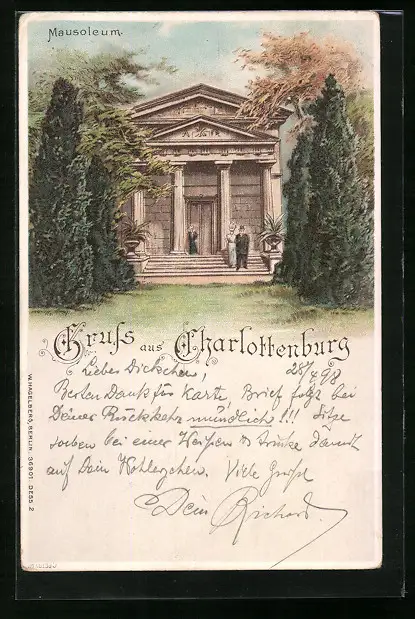 Mausoleum.
Gruss aus Charlottenburg
28/4 98
Liebes Dickchen,
Besten Dank für Karte, Brief folgt bei
Deiner Rückkehr mündlich!!! Sitze
soeben bei einer Weißen & trinke damit
auf Dein Wohlergehen. Viele Grüße
Dein Richard.
W. HAGELBERG, BERLIN. 36901 DESS. 2